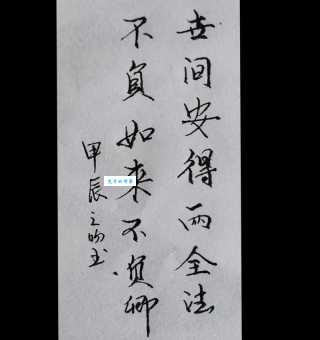 世间安得两全法
不负如来不负卿
甲辰之昀书